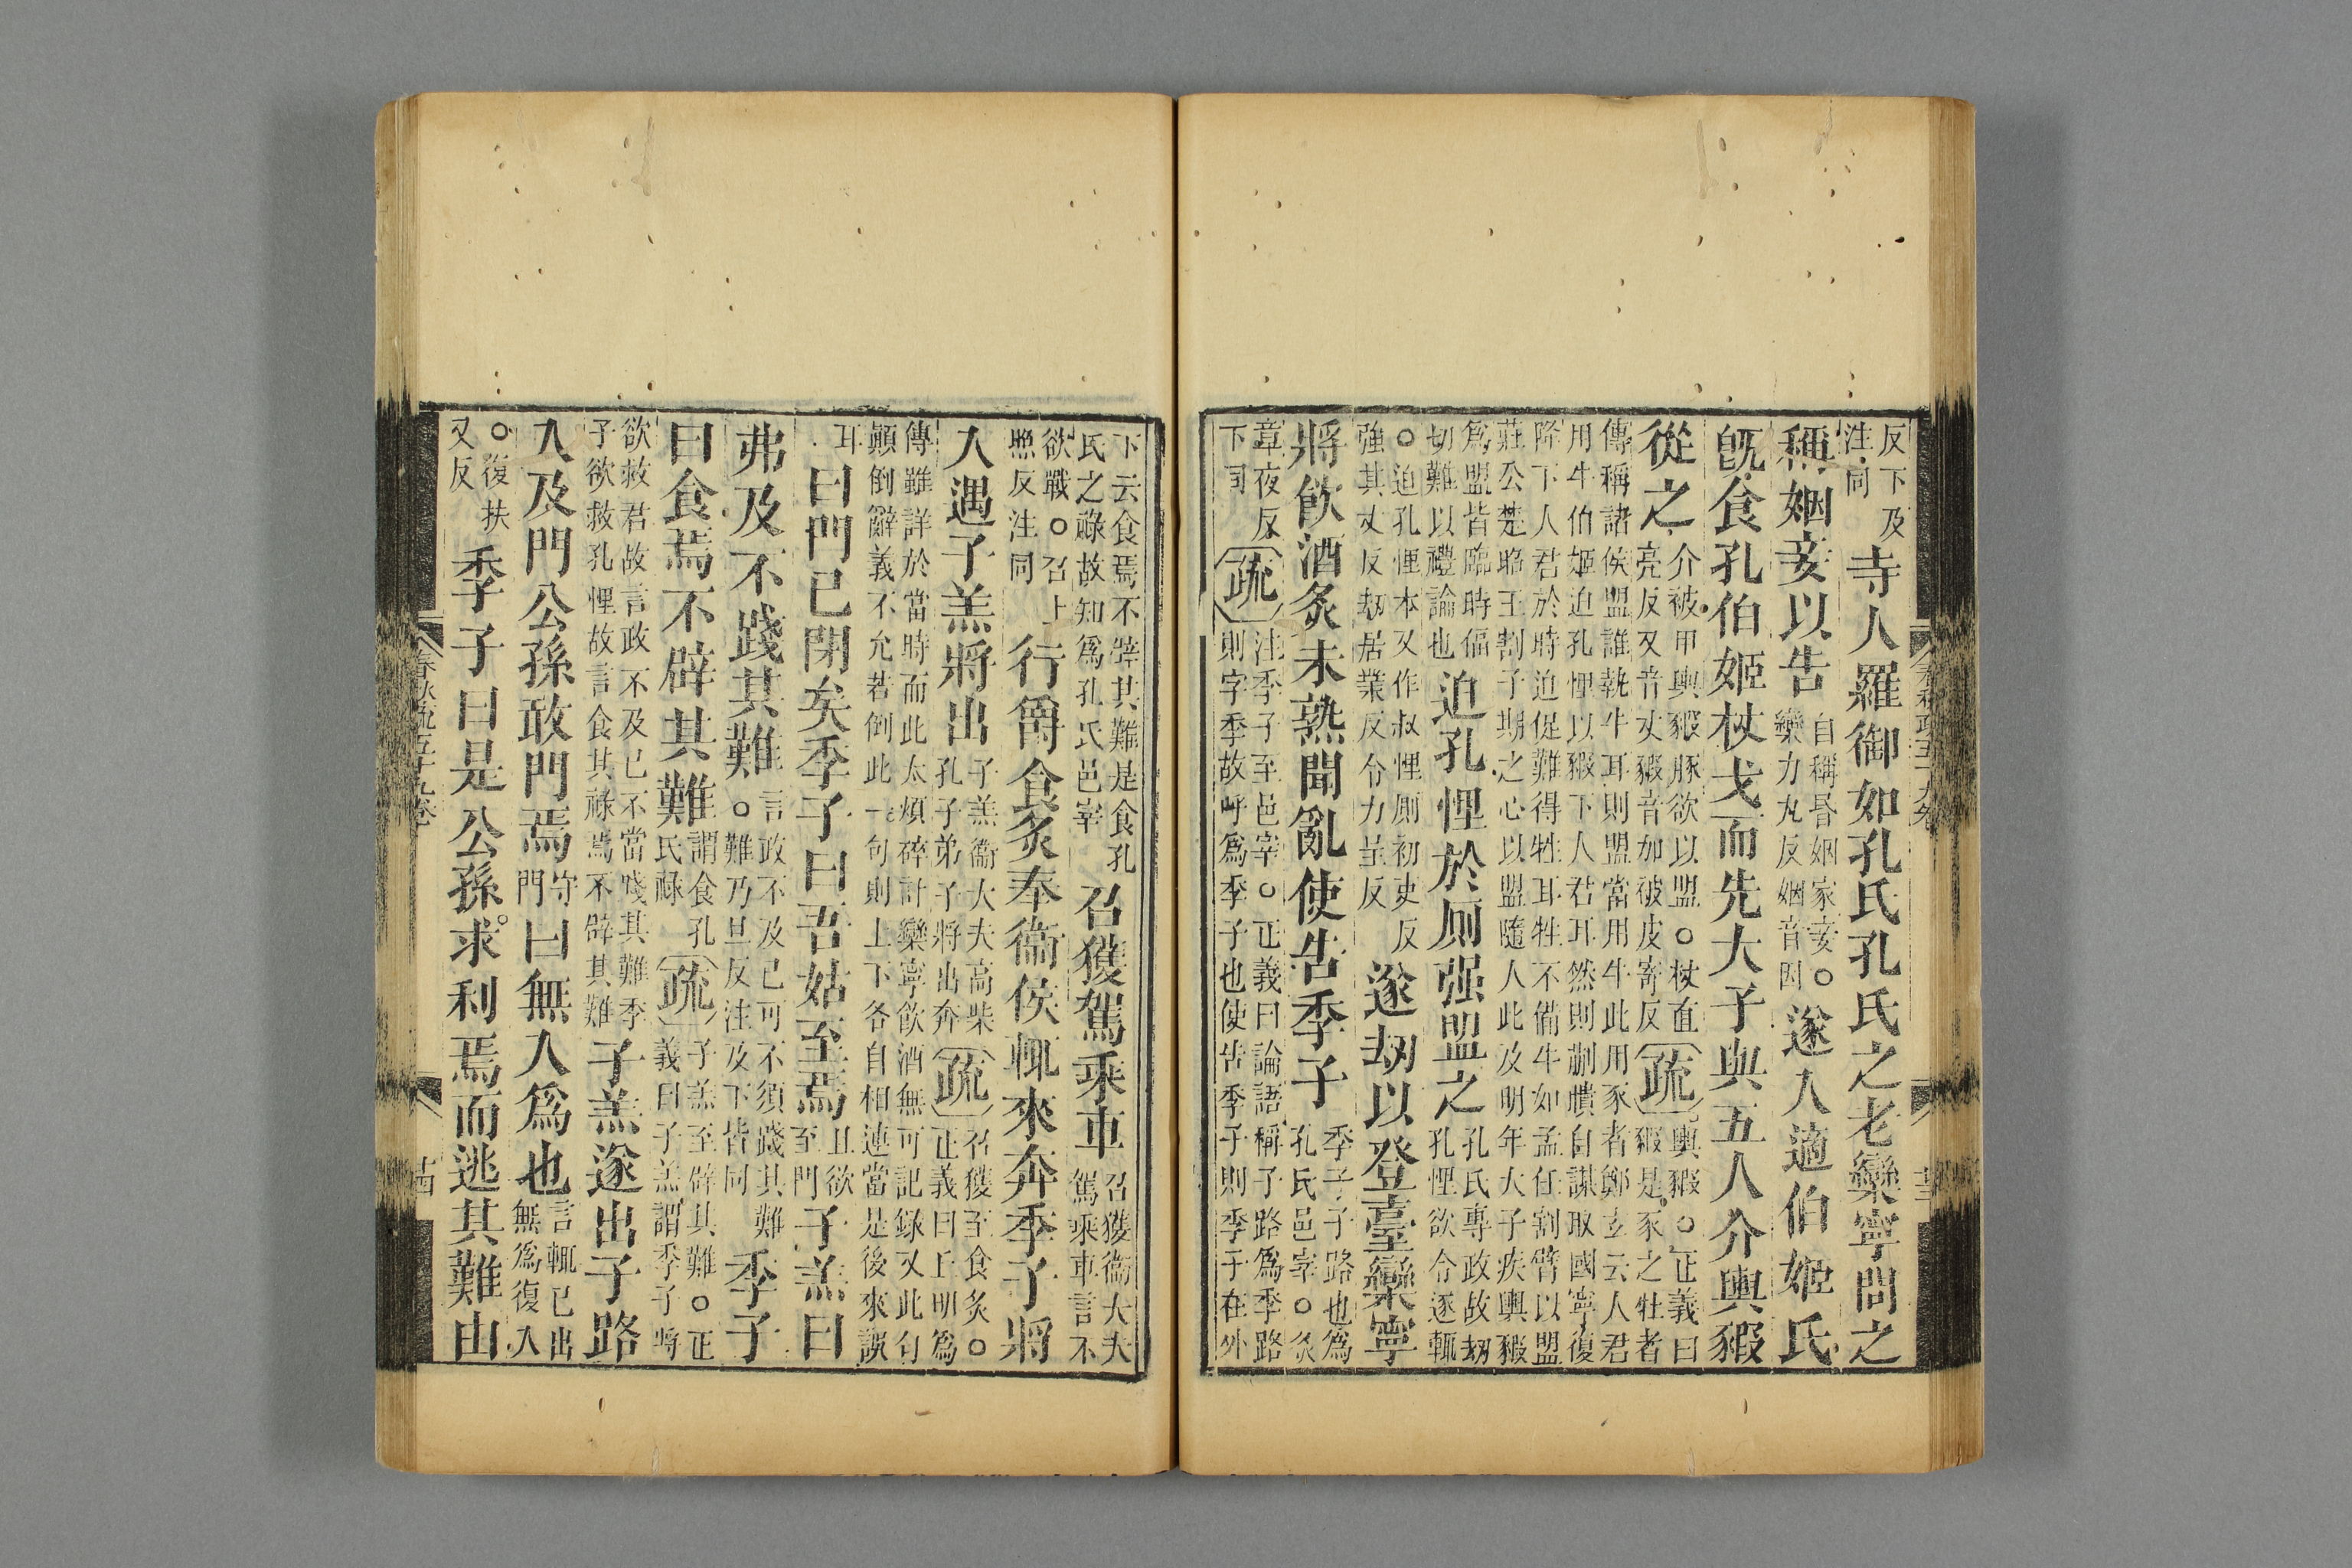 反下及注同寺人羅御如孔氏孔氏之老欒寧問之
稱姻妾以告自稱昏姻家妾○欒力丸反姻音因遂入適伯姬氏
旣食孔伯姬杖戈而先大子與五人介輿豭
從之介被甲輿豭豚欲以盟○杖直亮反又音丈豭音加被皮寄反疏輿豭○正義曰豭是豕之牡者
傳稱諸侯盟誰執牛耳則盟當用牛此用豕者鄭玄云人君
用牛伯姬迫孔悝以豭下人君耳然則蒯聵自謀取國寧復
降下人君於時迫促難得牲耳牲不備牛如孟任割臂以盟
莊公楚昭王割子期之心以盟隨人此及明年大子疾輿豭
爲盟皆臨時偪切難以禮論也迫孔悝於厠强盟之孔氏專政故劫孔悝欲令逐輒
○迫孔悝本又作叔悝厠初吏反強其丈反劫居業反令力呈反遂劫以登臺欒寧
將飲酒炙未熟聞亂使告季子季子子路也爲孔氏邑宰○炙
章夜反下同疏注季子至邑宰○正義曰論語稱子路爲季路則字季故呼爲季子也使告季子則季子在外
下云食焉不辟其難是食孔氏之祿故知爲孔氏邑宰召獲駕乘車召獲衞大夫駕乘車言不
欲戰○召上照反注同行爵食炙奉衞侯輒來奔季子將
入遇子羔將出子羔衞大夫高柴孔子弟子將出奔疏召獲至食炙○正義曰上明爲
傳雖詳於當時而此太煩碎計欒寧飲酒無可記録又此句
顚倒辭義不允若倒此一句則上下各自相連當是後來誤
耳曰門已閉矣季子曰吾姑至焉且欲至門子羔曰
弗及不踐其難言政不及已可不須踐其難○難乃旦反注及下皆同季子
曰食焉不辟其難謂食孔氏祿疏子羔至辟其難○正義曰子羔謂季子將
欲救君故言政不及已不當踐其難季子欲救孔悝故言食其祿焉不辟其難子羔遂出子路
入及門公孫敢門焉守門曰無入爲也言輒已出無爲復入
○復扶又反季子曰是公孫求利焉而逃其難由